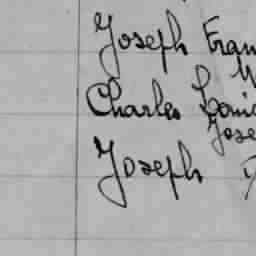 Joseph Fran
Charles Louis
Jose
Joseph